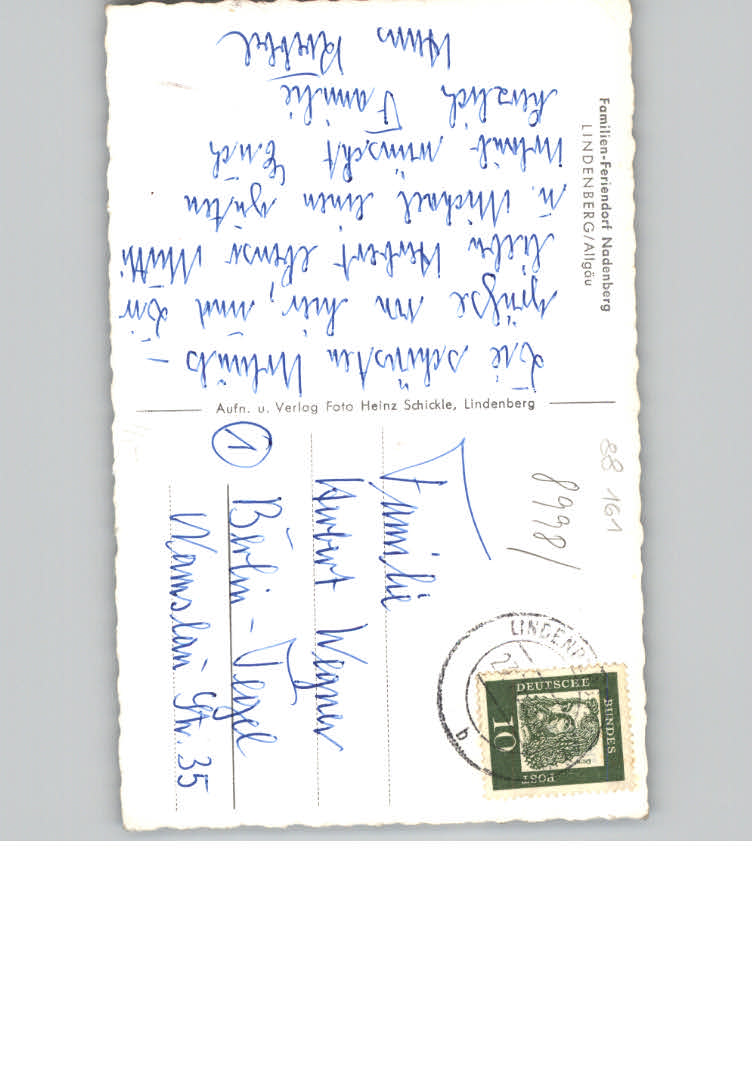 Familien-Feriendorf Nadenberg
LINDENBERG/Allgäu
Die schönsten Urlaubs-
grüße von hier, und Dir
lieber Herbert ebenso Mutti
u. Michael einen guten
Urlaub wünscht Euch
herzlich Familie
Hans
Aufn. u. Verlag Foto Heinz Schickle, Lindenberg
88 161
8998/
LINDENBE
DEUTSCHE
BUNDES
POST
10
b
Familie
Herbert Wegner
1
Berlin-Tegel
Namslau Str. 35